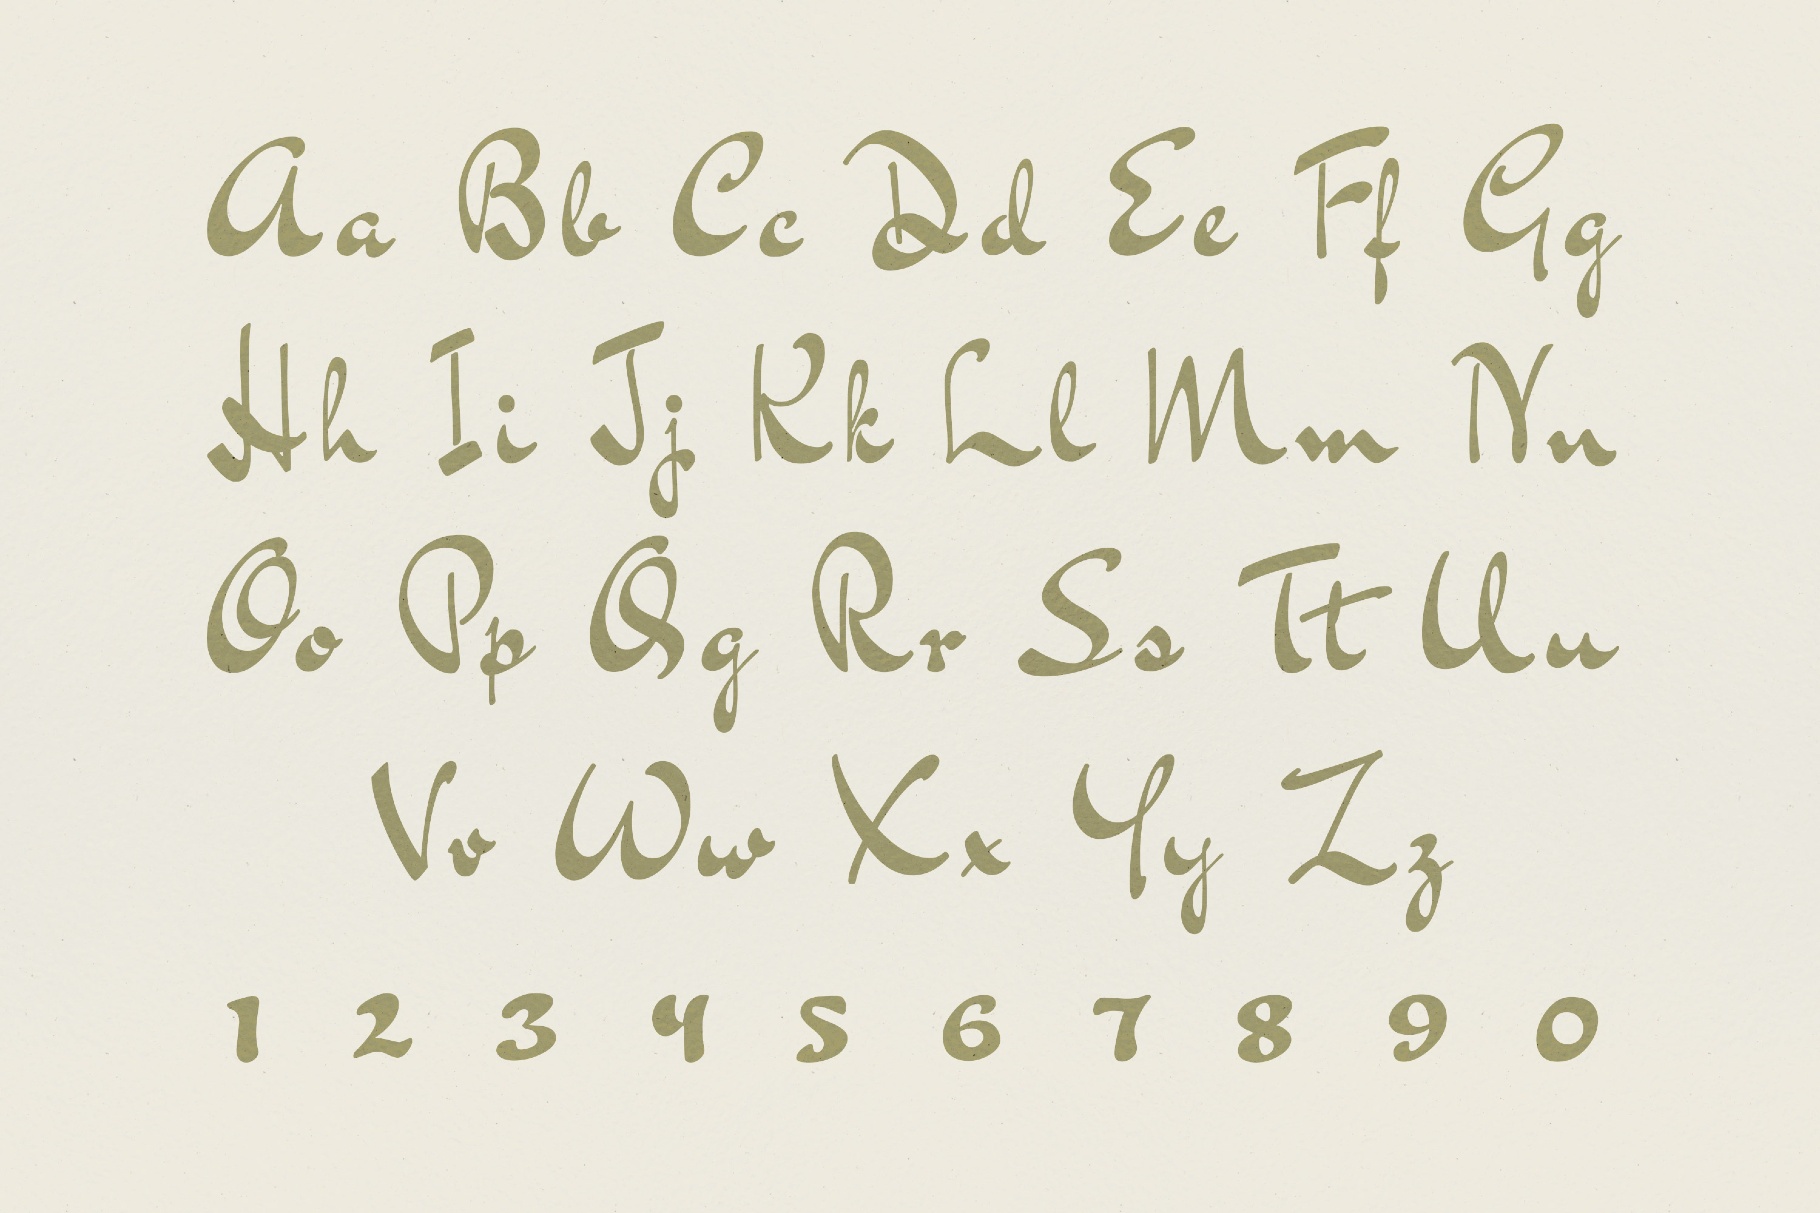 Aa Bb Cc Dd Ee Ff Gg
Hh Ii Jj Kk Ll Mm Nn
Oo Pp Qg Rr Ss Tt Uu
Vv Ww Xx Yy Zz
1 2 3 4 5 6 7 8 9 0